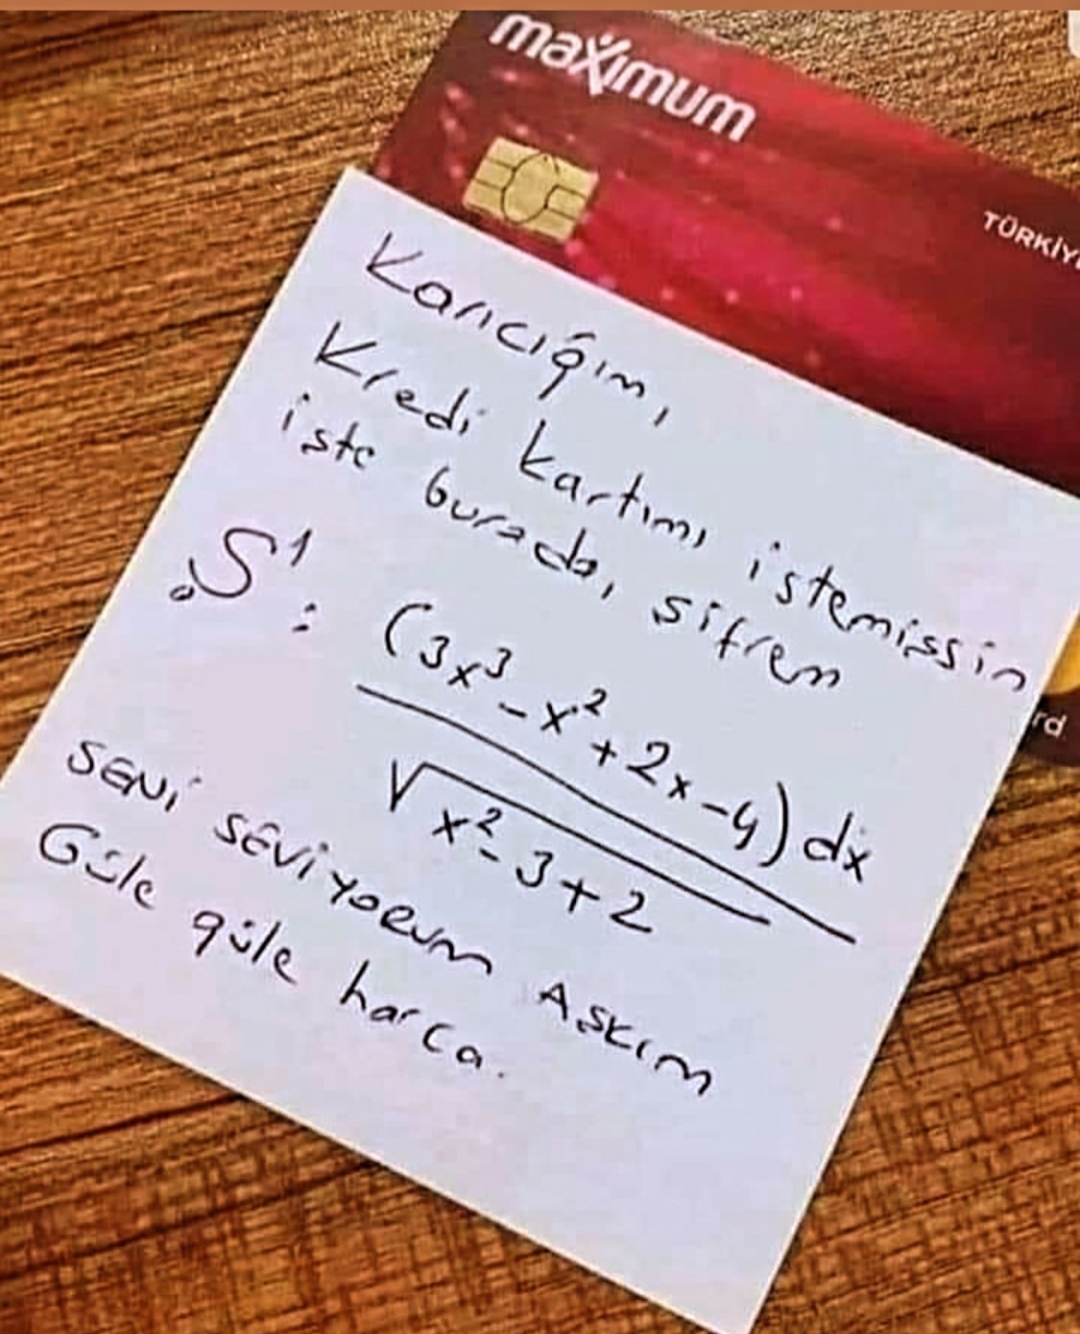 maximum
TÜRKİYE
Karıcığım,
Kredi kartımı istemişsin
işte burada, şifrem
∫₀¹ : (3x³ - x² + 2x - 4) dx
√x² - 3 + 2
SENİ SEVİYORUM AŞKIM
Güle güle harca.
rd